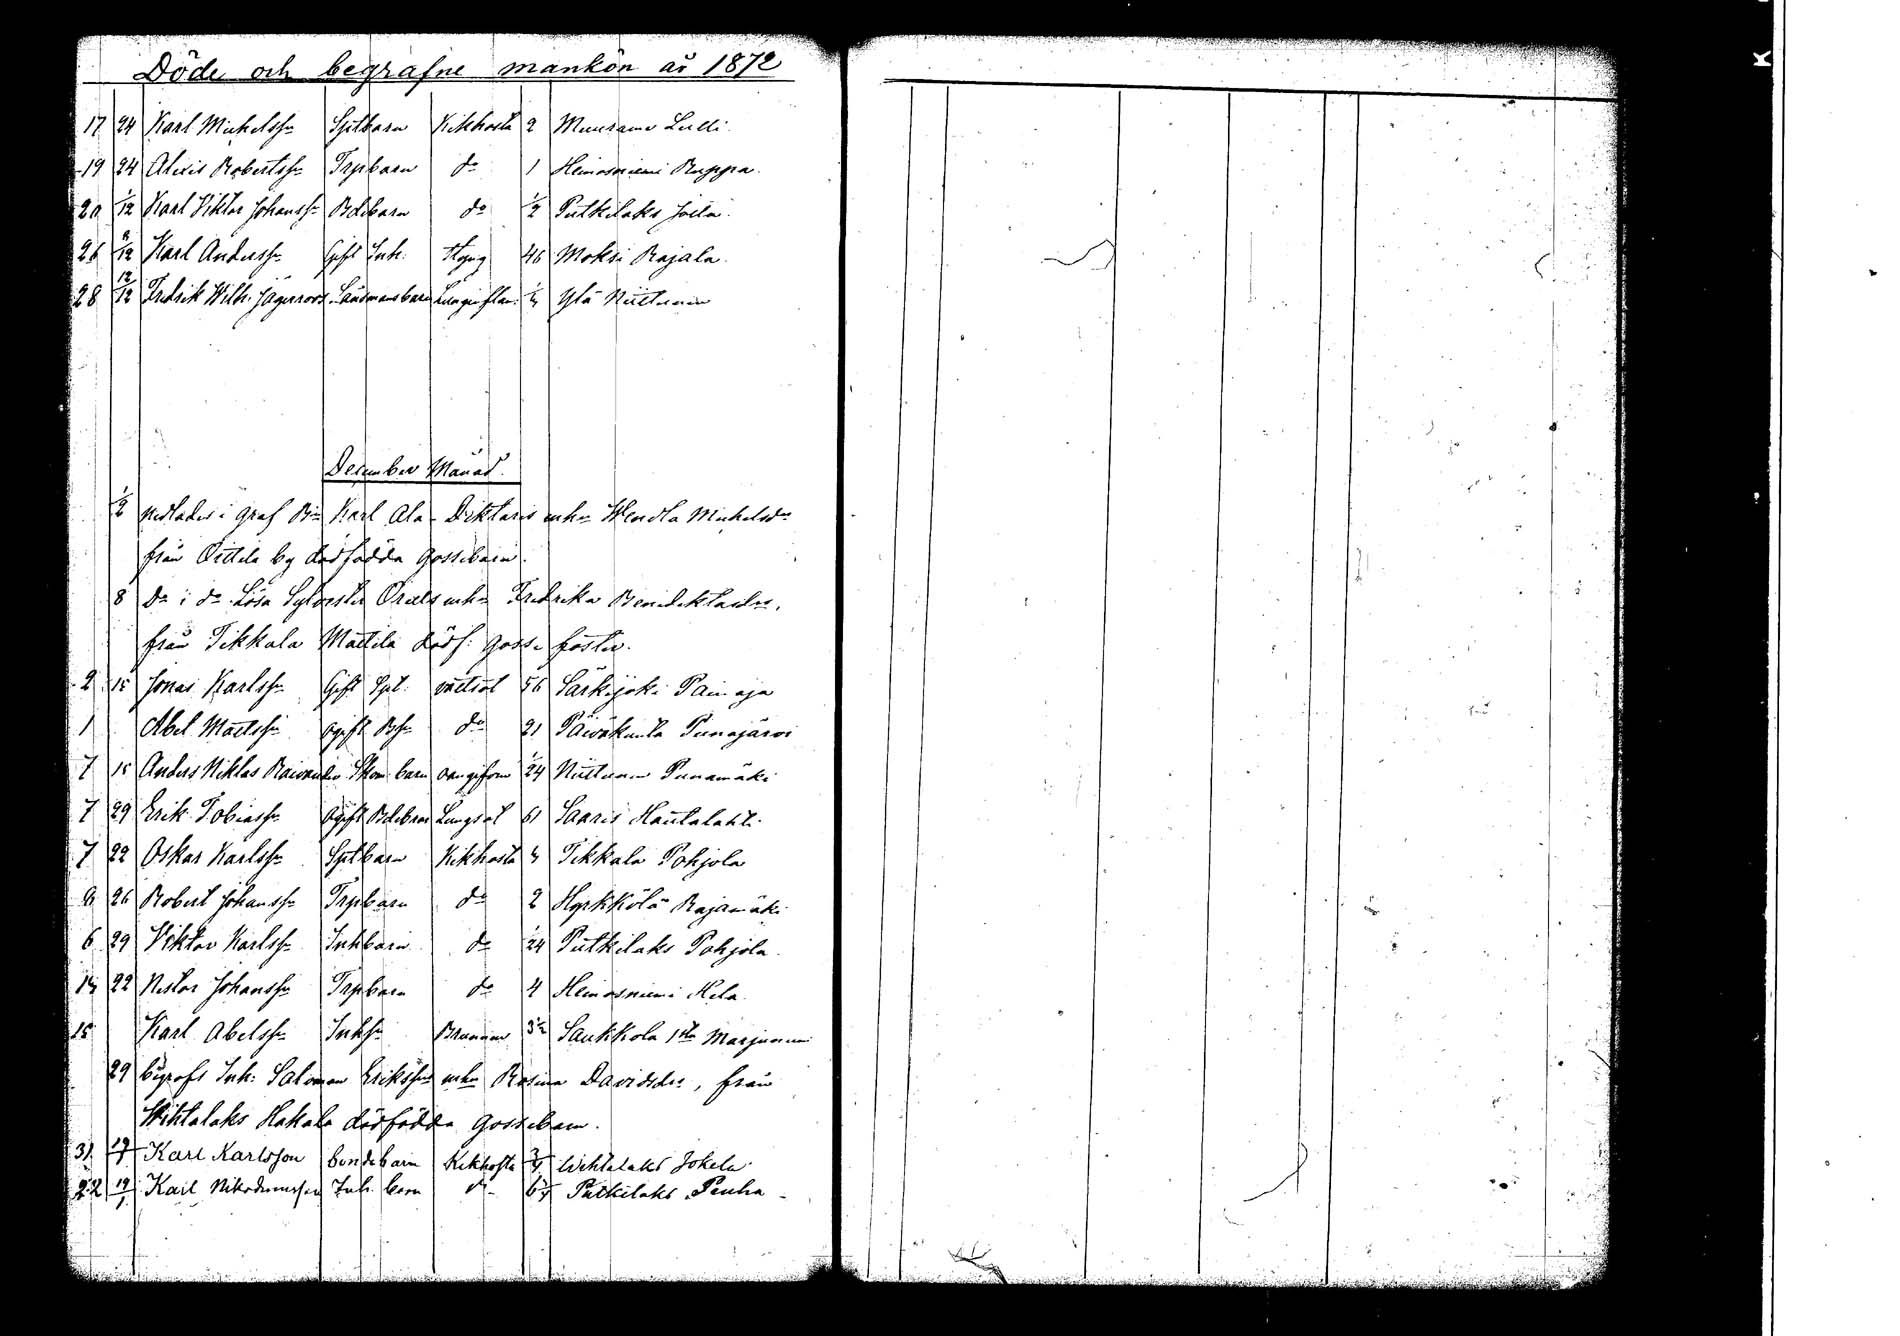 Döde och begrafne mankön år 1872
17 24 Karl Michelss:n Spitbarn Kikhosta 2 Muurame Lulli.
19 24 Alexis Robertss:n Trpbarn d:o 1 Heinosniemi Ruppa.
20 1/12 Karl Viktor Johanss:n Bdebarn d:o 1/2 Putkilaks Joila.
26 8/12 Karl Anderss:n Gift Inh. Styng 46 Moksi Rajala.
28 12/12 Fredrik Wilh: Jägerroos Länsmansbarn Lunginflam: Ylä Niittunen
December Månad.
1/2 nedlades i graf B:n Karl Ala-Dektaris enk:n Wendla Michelsd:rs
från Oittila by dödfödda gossebarn.
8 D:o i d:o Lösa Sylvester Orells enk:n Fredrika Benediktsd:rs,
från Tikkala Mattila dödf: gosse foster.
2 15 Jonas Karlss:n Gift Spit. 56 Särkijoki Painaja
1 Abel Matts:n ogift Bs:n d:o 21 Päiväkunta Punajärvi
7 15 Anders Niklas Skom. barn oangifven 1/24 Niittunen Punamäki
7 29 Erik Tobiass:n Ogift Lungsot 61 Saaris Hautalahti
7 22 Oskar Karlss:n Spitbarn Kikhosta Tikkala Pohjola
9 26 Robert Johanss:n Trpbarn d:o 2 Hyrkkölä Rajamäki
6 29 Viktor Karlss:n Inhbarn d:o 1/24 Putkilaks Pohjola
22 Nestor Johanss:n Trpbarn d:o 4 Heinosniemi Hela
15 Karl Abelss:n Inhs:n 3 1/2 Saukkola 1sta Marjunen
29 begrofs Inh: Salomon Erikss:ns enk:n Rosina Davidsd:rs, från
Wihtalaks Hakala dödfödda gossebarn.
31 19/1 Karl Karlsson bondebarn Kikhosta 3/4 Wihtalaks Jokela
22 19/1 Karl Nikodemusson Inh. barn d:o Putkilaks Penha
K